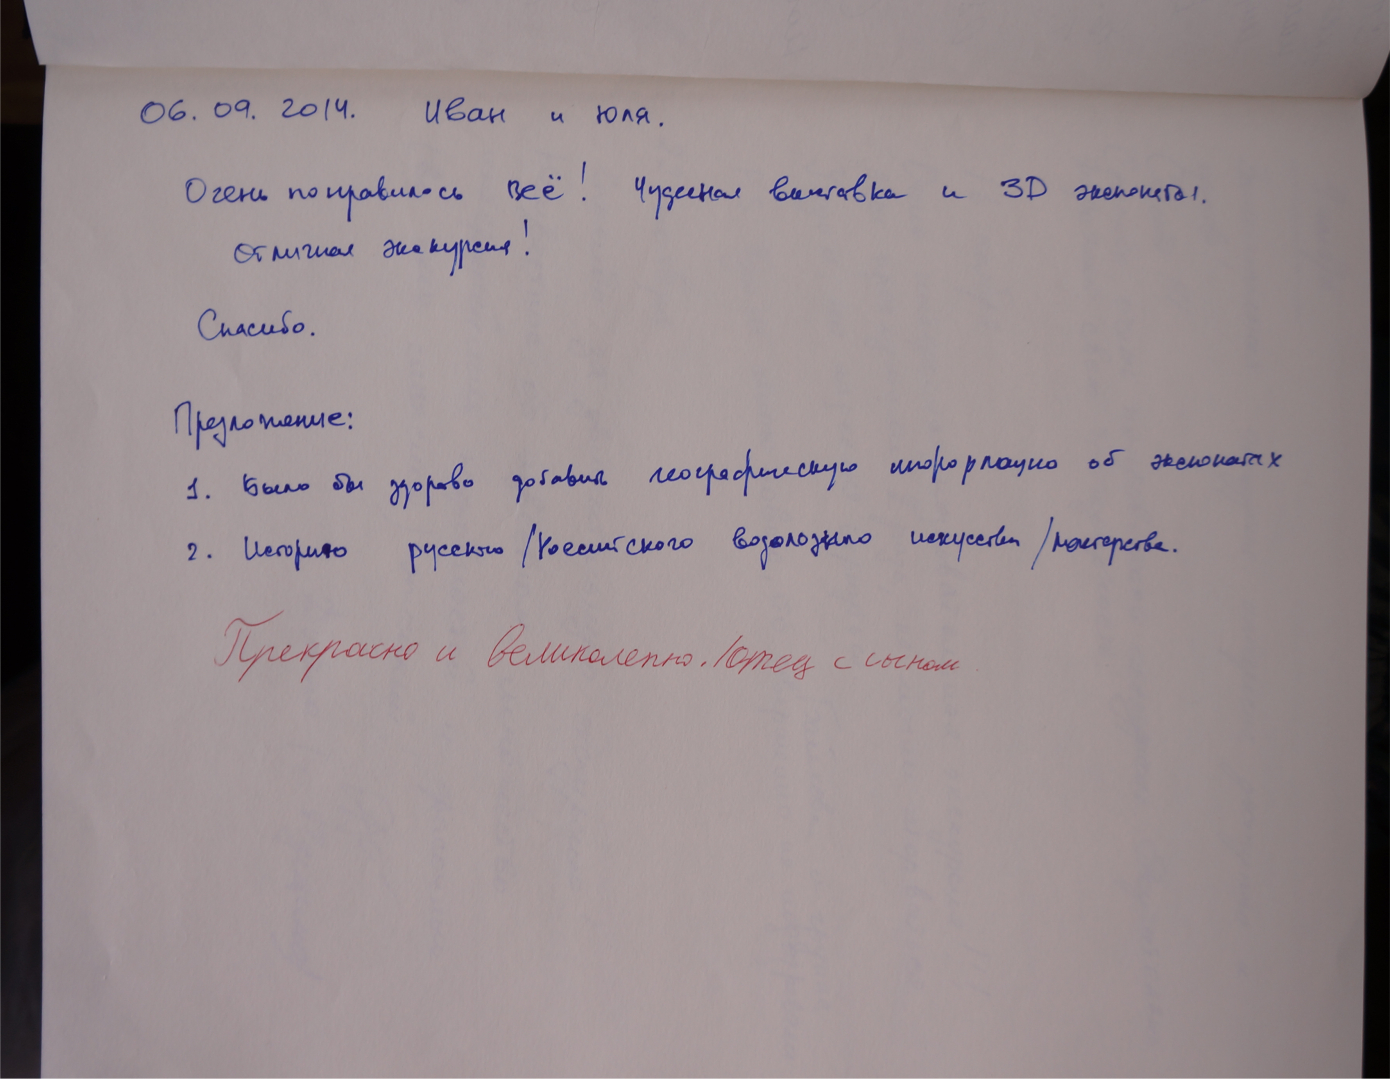 06.09.2014. Иван и Юля.
Очень понравилось всё! Чудесная выставка и 3D экспонаты.
Отличная экскурсия!
Спасибо.
Предложение:
1. Было бы здорово добавить географическую информацию об экспонатах
2. Историю русского/российского искусства/мастерства.
Прекрасно и великолепно. /отец с сыном